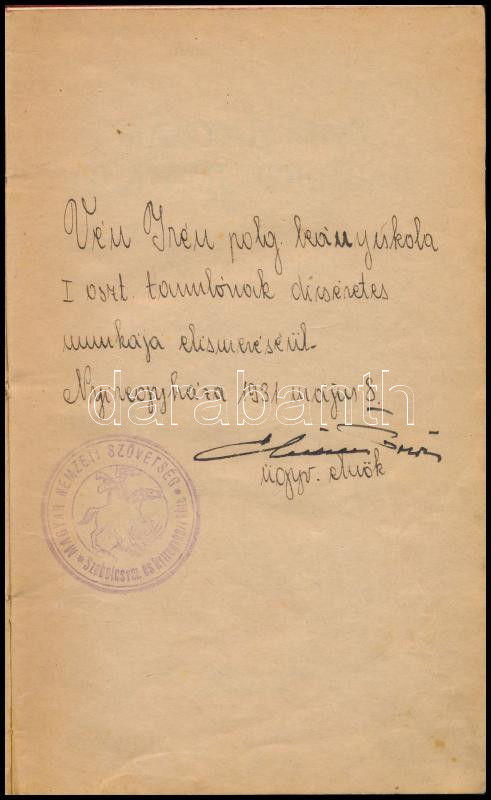 Vén Irén polg. leányiskola
I oszt. tanulónak dícséretes
munkája elismeréséül.
Nyíregyháza 1931 május 8.
ügyv. elnök
MAGYAR NEMZETI SZÖVETSÉG
Szabolcsvm. és
darabanth